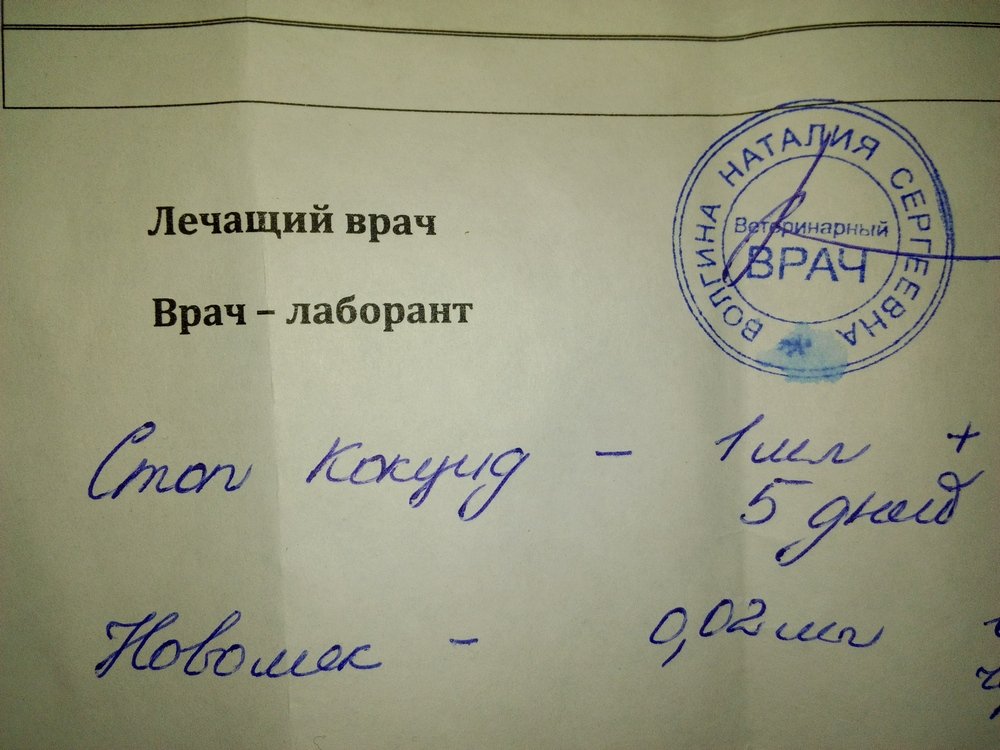 Лечащий врач
Врач – лаборант
ВОЛГИНА НАТАЛИЯ СЕРГЕЕВНА
Ветеринарный
ВРАЧ
Стоп кокцид – 1 мл +
5 дней
Новомек – 0,02 мл